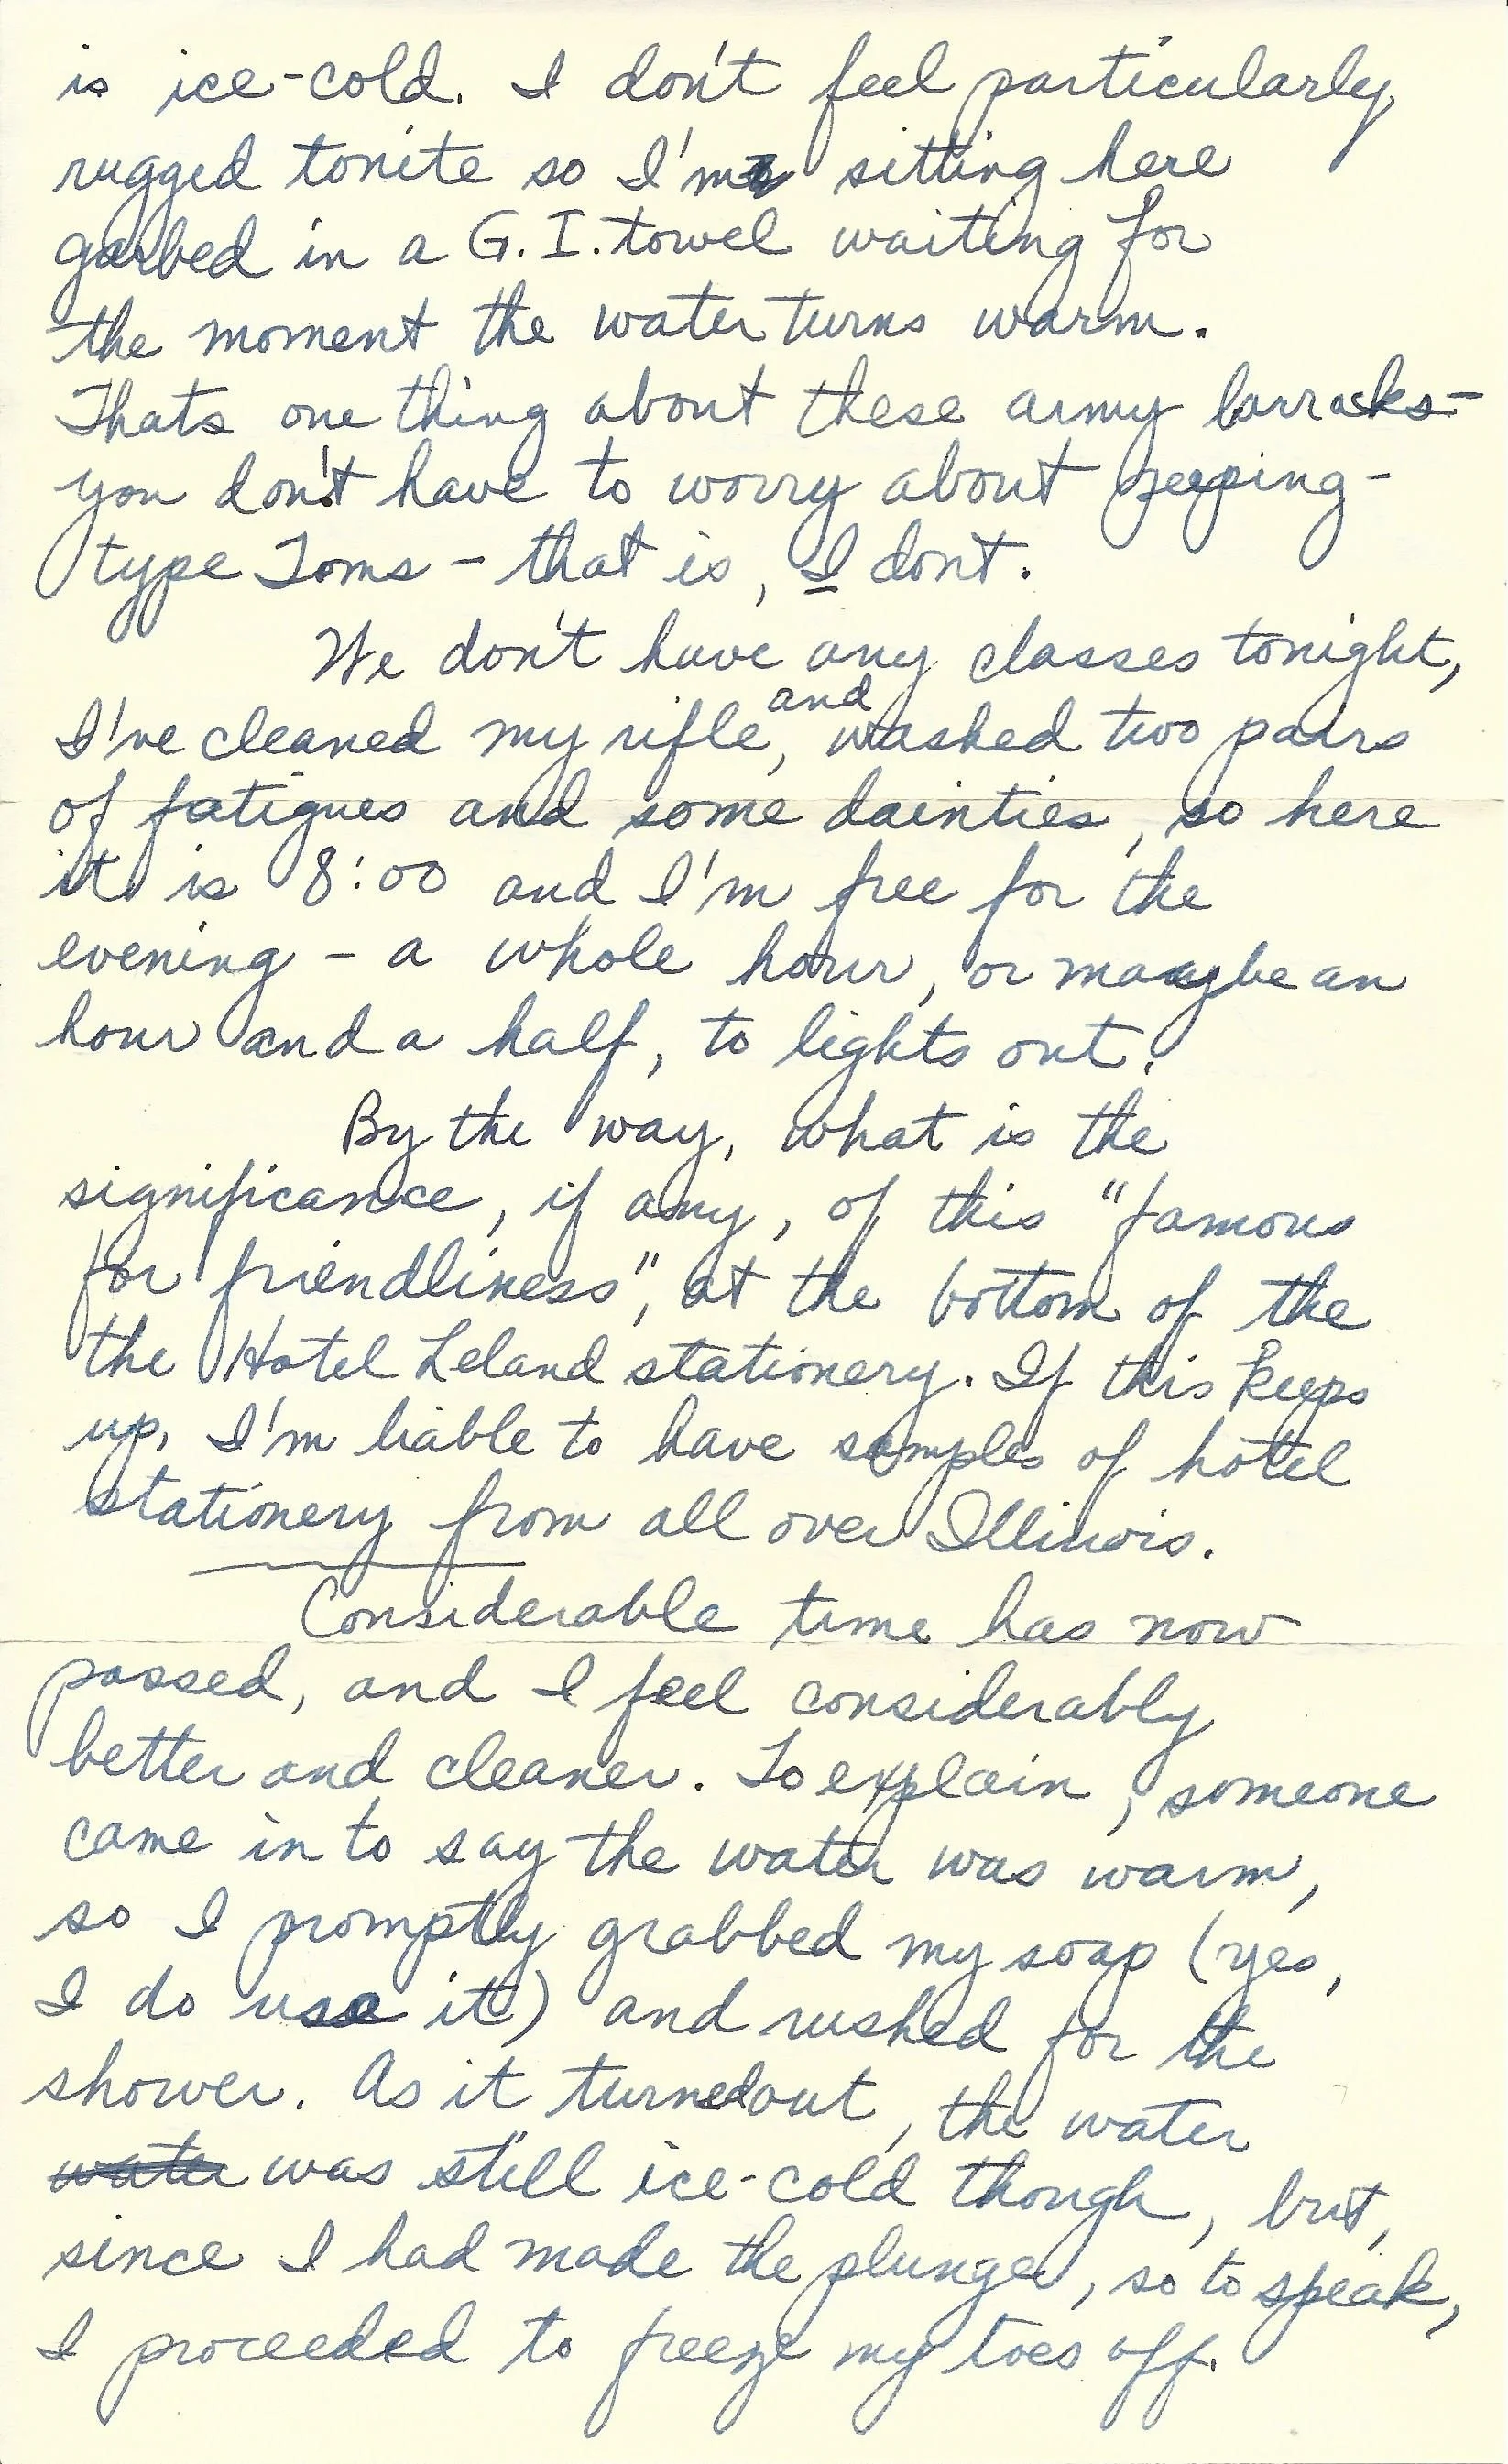 is ice-cold. I don't feel particularly
rugged tonite so I'm sitting here
garbed in a G.I. towel waiting for
the moment the water turns warm.
Thats one thing about these army barracks-
you don't have to worry about peeping-
type Toms - that is, I dont.
We don't have any classes tonight,
I've cleaned my rifle, and washed two pairs
of fatigues and some dainties, so here
it is 8:00 and I'm free for the
evening - a whole hour, or maybe an
hour and a half, to lights out.
By the way, what is the
significance, if any, of this "famous
for friendliness", at the bottom of the
the Hotel Leland stationery. If this keeps
up, I'm liable to have samples of hotel
stationery from all over Illinois.
Considerable time has now
passed, and I feel considerably
better and cleaner. To explain, someone
came in to say the water was warm,
so I promptly grabbed my soap (yes,
I do use it) and rushed for the
shower. As it turned out, the water
water was still ice-cold though, but,
since I had made the plunge, so to speak,
I proceeded to freeze my toes off.